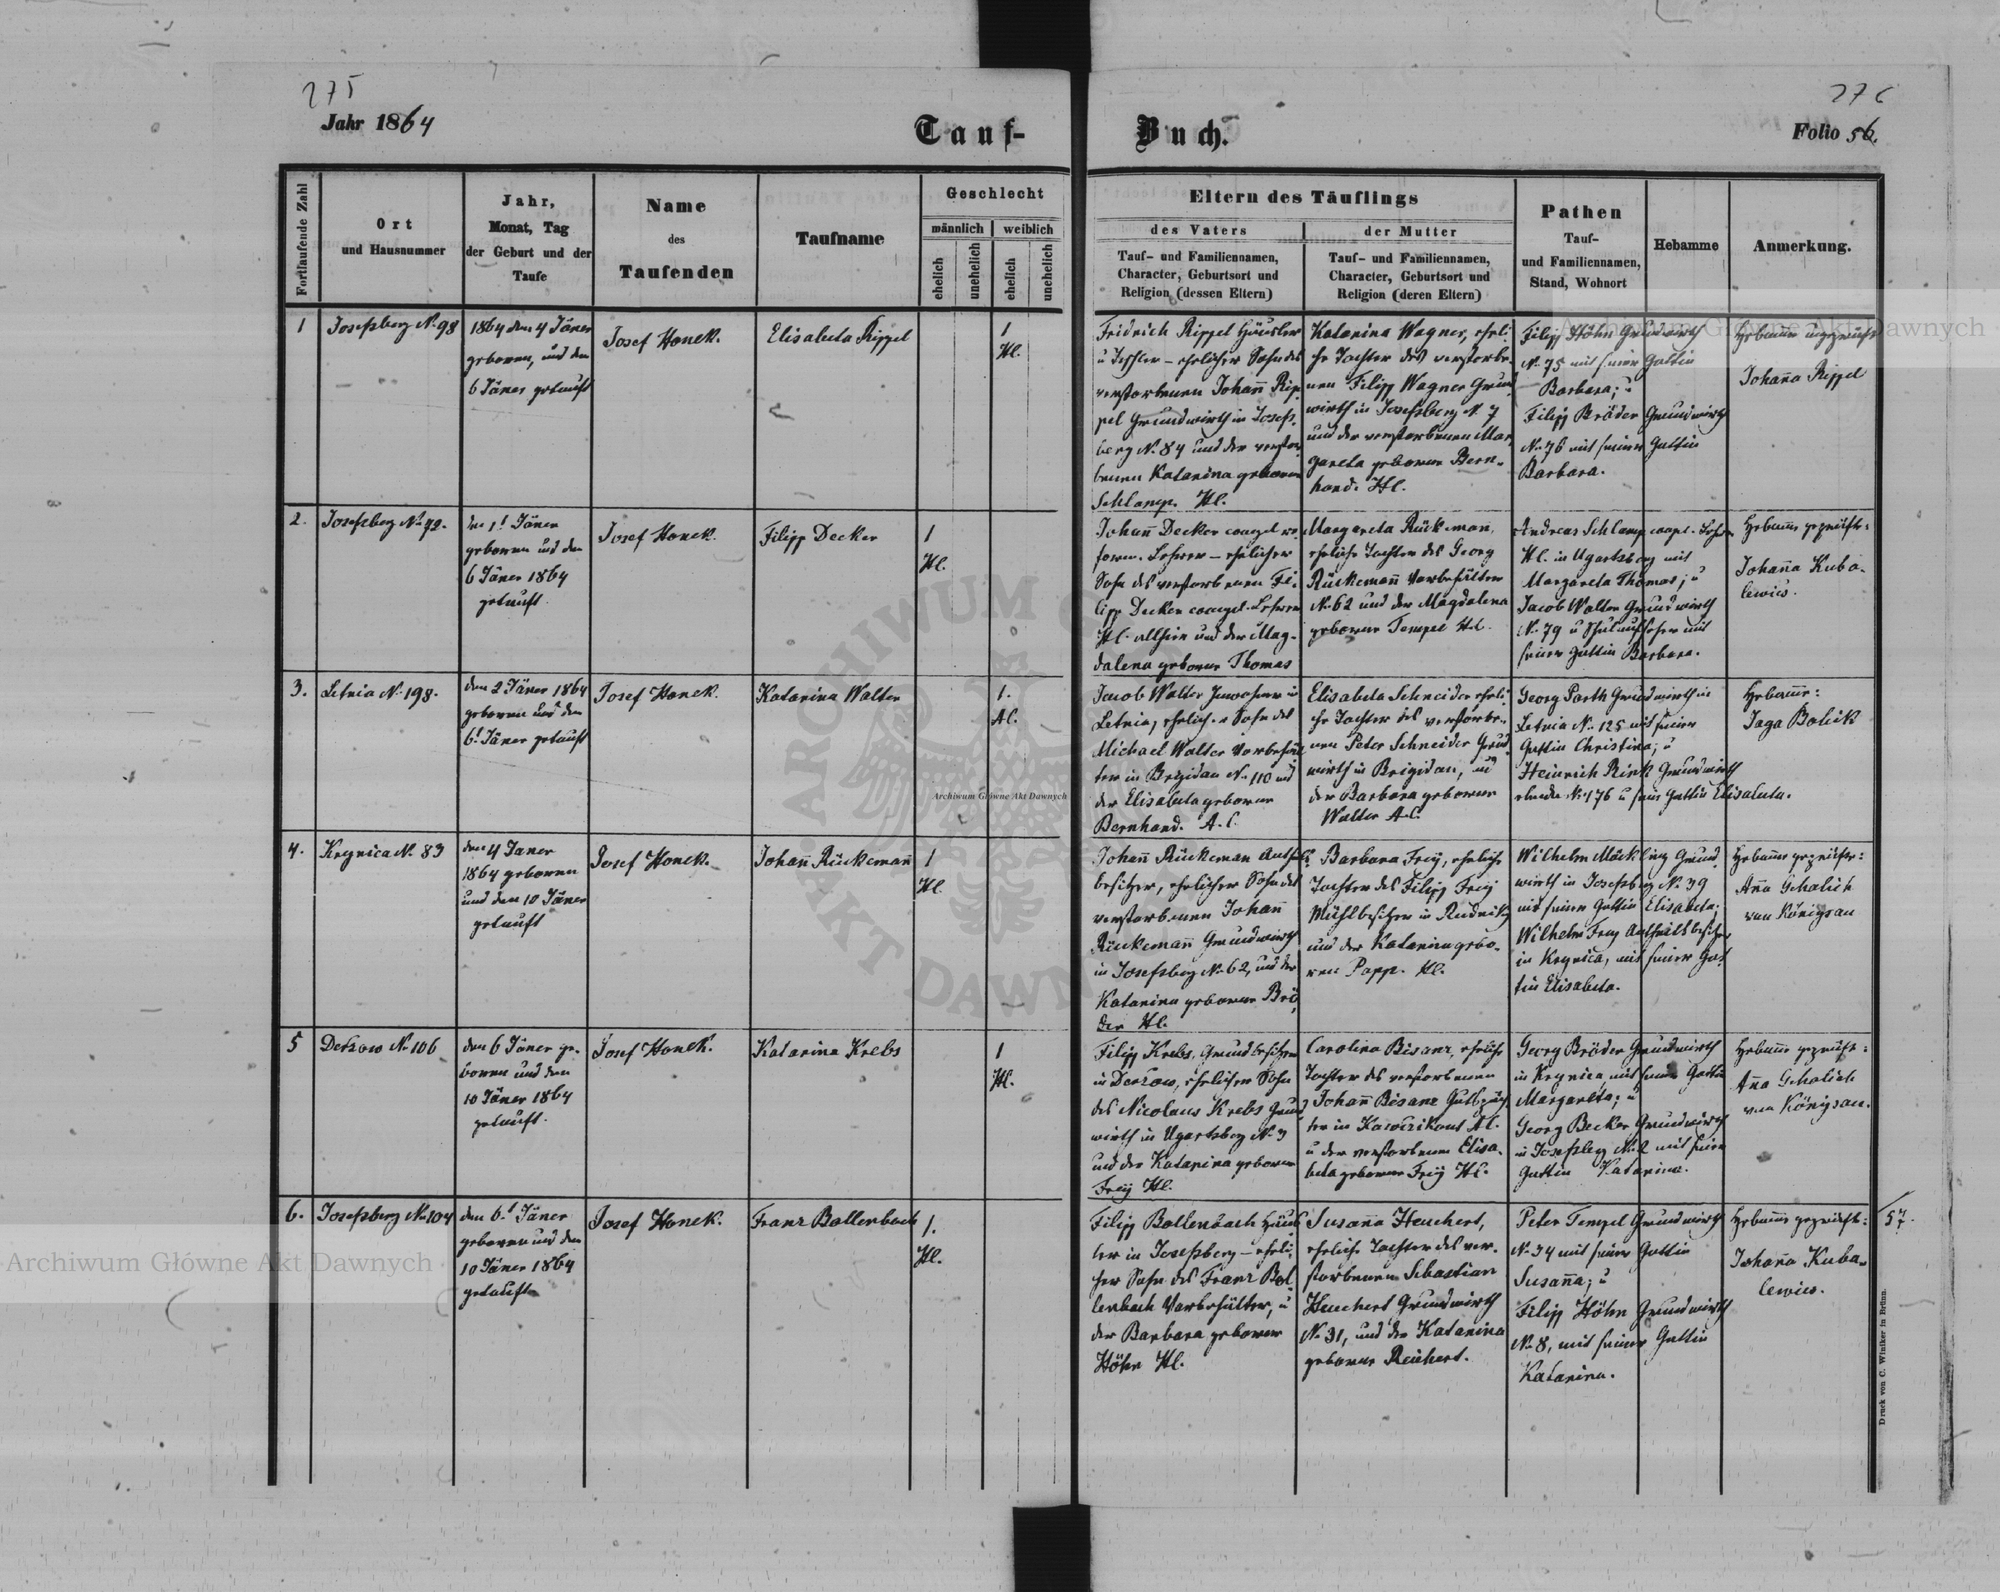 275
276
Jahr 1864
Tauf-
Buch.
Folio 56.
Fortlaufende Zahl
Ort
und Hausnummer
Jahr,
Monat, Tag
der Geburt und der
Taufe
Name
des
Taufenden
Taufname
Geschlecht
männlich
weiblich
ehelich
unehelich
ehelich
unehelich
Eltern des Täuflings
des Vaters
Tauf- und Familiennamen,
Character, Geburtsort und
Religion (dessen Eltern)
der Mutter
Tauf- und Familiennamen,
Character, Geburtsort und
Religion (deren Eltern)
Pathen
Tauf-
und Familiennamen,
Stand, Wohnort
Hebamme
Anmerkung.
1
Josefsberg N. 98
1864 den 4 Jäner
geboren, und den
6 Jäner getauft
Josef Honek.
Elisabeta Rippel
1
Hl.
Fridrich Rippel Häusler
u Tischler – ehelicher Sohn des
verstorbenen Johañ Rip-
pel Grundwirth in Josefs-
berg N. 84 und der verstor-
benen Katarina geborene
Schlamp. Hl.
Katarina Wagner, eheli-
che Tochter des verstorbe-
nen Filipp Wagner Grund-
wirth in Josefsberg N. 7
und der verstorbenen Mar-
gareta geborene Bern-
hard. Hl.
Filipp Höhn Grundwirth
N. 75 mit seiner Gattin
Barbara; u
Filipp Bröder Grundwirth
N. 76 mit seiner Gattin
Barbara.
Hebamme
Johaña Rippel
2.
Josefsberg N. 72.
den 1t Jäner
geboren und den
6 Jäner 1864
getauft.
Josef Honek.
Filipp Decker
1
Hl.
Johañ Decker evangel. re-
form. Lehrer – ehelicher
Sohn des verstorbenen Fi-
lipp Decker evangel. Lehrer
Hl. allhier und der Mag-
dalena geborene Thomas
Margareta Rückeman,
eheliche Tochter des Georg
Rückemañ Vorbehälter
N. 62 und der Magdalena
geborene Tempel Hl.
Andreas Schlamp evangel. Lehrer
Hl. in Ugartsberg mit
Margareta Thomas; u
Jacob Walter Grundwirth
N. 79 u Schulaufseher mit
seiner Gattin Barbara.
Hebamme geprüfte:
Johaña Kuba-
lewics.
3.
Letnia N. 198.
den 2 Jäner 1864
geboren und den
6t Jäner getauft
Josef Honek.
Katarina Walter
1.
Al.
Jacob Walter Inwohner in
Letnia, ehelicher Sohn des
Michael Walter Vorbehäl-
ter in Brigidau N. 110 und
der Elisabeta geborene
Bernhard. A. C.
Elisabeta Schneider eheli-
che Tochter des verstorbe-
nen Peter Schneider Grund-
wirth in Brigidau, und
der Barbara geborene
Walter A. C.
Georg Parth Grundwirth in
Letnia N. 125 mit seiner
Gattin Christina; u
Heinrich Rink Grundwirth
N. 176 u seine Gattin Elisabeta.
Hebamme:
Jaga Bolick
4.
Krynica N. 83
den 4 Janer
1864 geboren
und den 10 Jäner
getauft
Josef Honek.
Johañ Rückemañ
1
Hl.
Johañ Rückeman Antheils-
besitzer, ehelicher Sohn des
verstorbenen Johañ
Rückemañ Grundwirth
in Josefsberg N. 62, und der
Katarina geborene Brö-
der Hl.
Barbara Frey, eheliche
Tochter des Filipp Frey
Mühlbesitzer in Rudnik
und der Katarina gebo-
rene Popp. Hl.
Wilhelm Möckling Grund-
wirth in Josefsberg N. 39
mit seiner Gattin Elisabeta;
Wilhelm Frey Antheilsbesitzer
in Krynica, mit seiner Gat-
tin Elisabeta.
Hebamme geprüfte:
Aña Schalich
von Königsau
5
Derzow N. 106
den 6 Jäner ge-
boren und den
10 Jäner 1864
getauft.
Josef Honek.
Katarina Krebs
1
Hl.
Filipp Krebs, Grundbesitzer
in Derzow, ehelicher Sohn
des Nicolaus Krebs Grund-
wirth in Ugartsberg N. 3
und der Katarina geborene
Frey Hl.
Carolina Bisanz, eheliche
Tochter des verstorbenen
Johañ Bisanz Gutspäch-
ter in
u der verstorbenen Elisa-
beta geborene Frey Hl.
Georg Bröder Grundwirth
in Krynica, mit seiner Gattin
Margareta; u
Georg Becker Grundwirth
in Josefsberg N. 2 mit seiner
Gattin Katarina.
Hebamme geprüfte:
Aña Schalich
von Königsau.
6.
Josefsberg N. 104
den 6t Jäner
geboren und den
10 Jäner 1864
getauft
Josef Honek.
Franz Bollenbach
1.
Hl.
Filipp Bollenbach Häus-
ler in Josefsberg – eheli-
cher Sohn des Franz Bol-
lenbach Vorbehälter, u
der Barbara geborene
Höhn Hl.
Susaña Heuchert,
eheliche Tochter des ver-
storbenen Sebastian
Heuchert Grundwirth
N. 31, und der Katarina
geborene Reichert.
Peter Tempel Grundwirth
N. 34 mit seiner Gattin
Susaña; u
Filipp Höhn Grundwirth
N. 8, mit seiner Gattin
Katarina.
Hebamme geprüfte:
Johaña Kuba-
lewics.
Druck von C. Winiker in Brünn.
Archiwum Główne Akt Dawnych
Archiwum Główne Akt Dawnych
Archiwum Główne Akt Dawnych